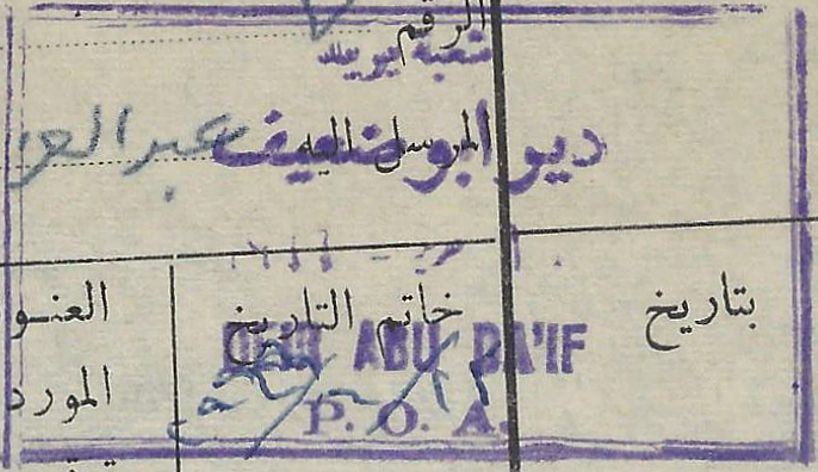 الرقم
شعبة بريد
المرسل اليه عبد العز
دير أبو ضعيف
بتاريخ
خاتم التاريخ
العنو
DEIR ABU DA'IF
المورد
P. O. A.